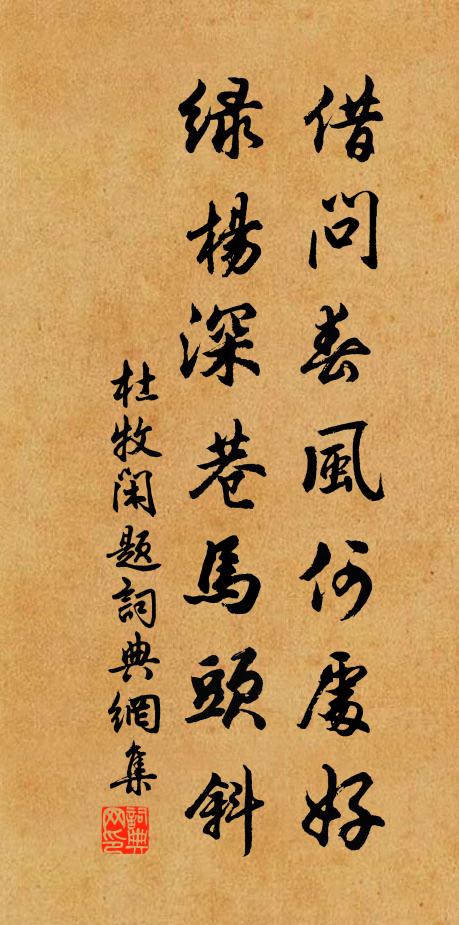 借問春風何處好
綠楊深巷馬頭斜
杜牧閑題詞典網集
詞典
网印